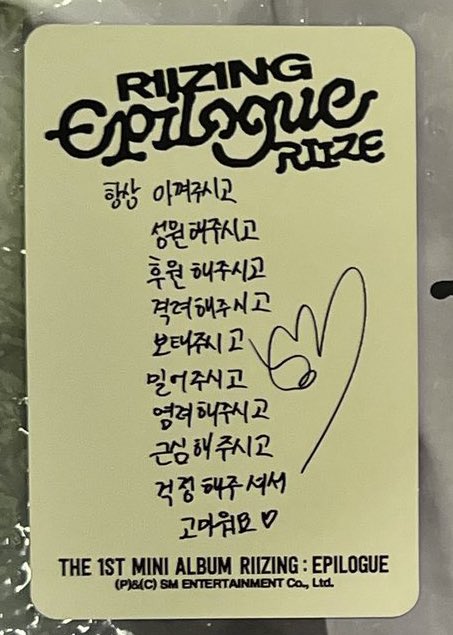 RIIZING
Epilogue
RIIZE
항상 아껴주시고
성원해주시고
후원해주시고
격려해주시고
보태주시고
밀어주시고
염려해주시고
근심해주시고
걱정해주셔서
고마워요♡
THE 1ST MINI ALBUM RIIZING : EPILOGUE
(P)&(C) SM ENTERTAINMENT Co., Ltd.